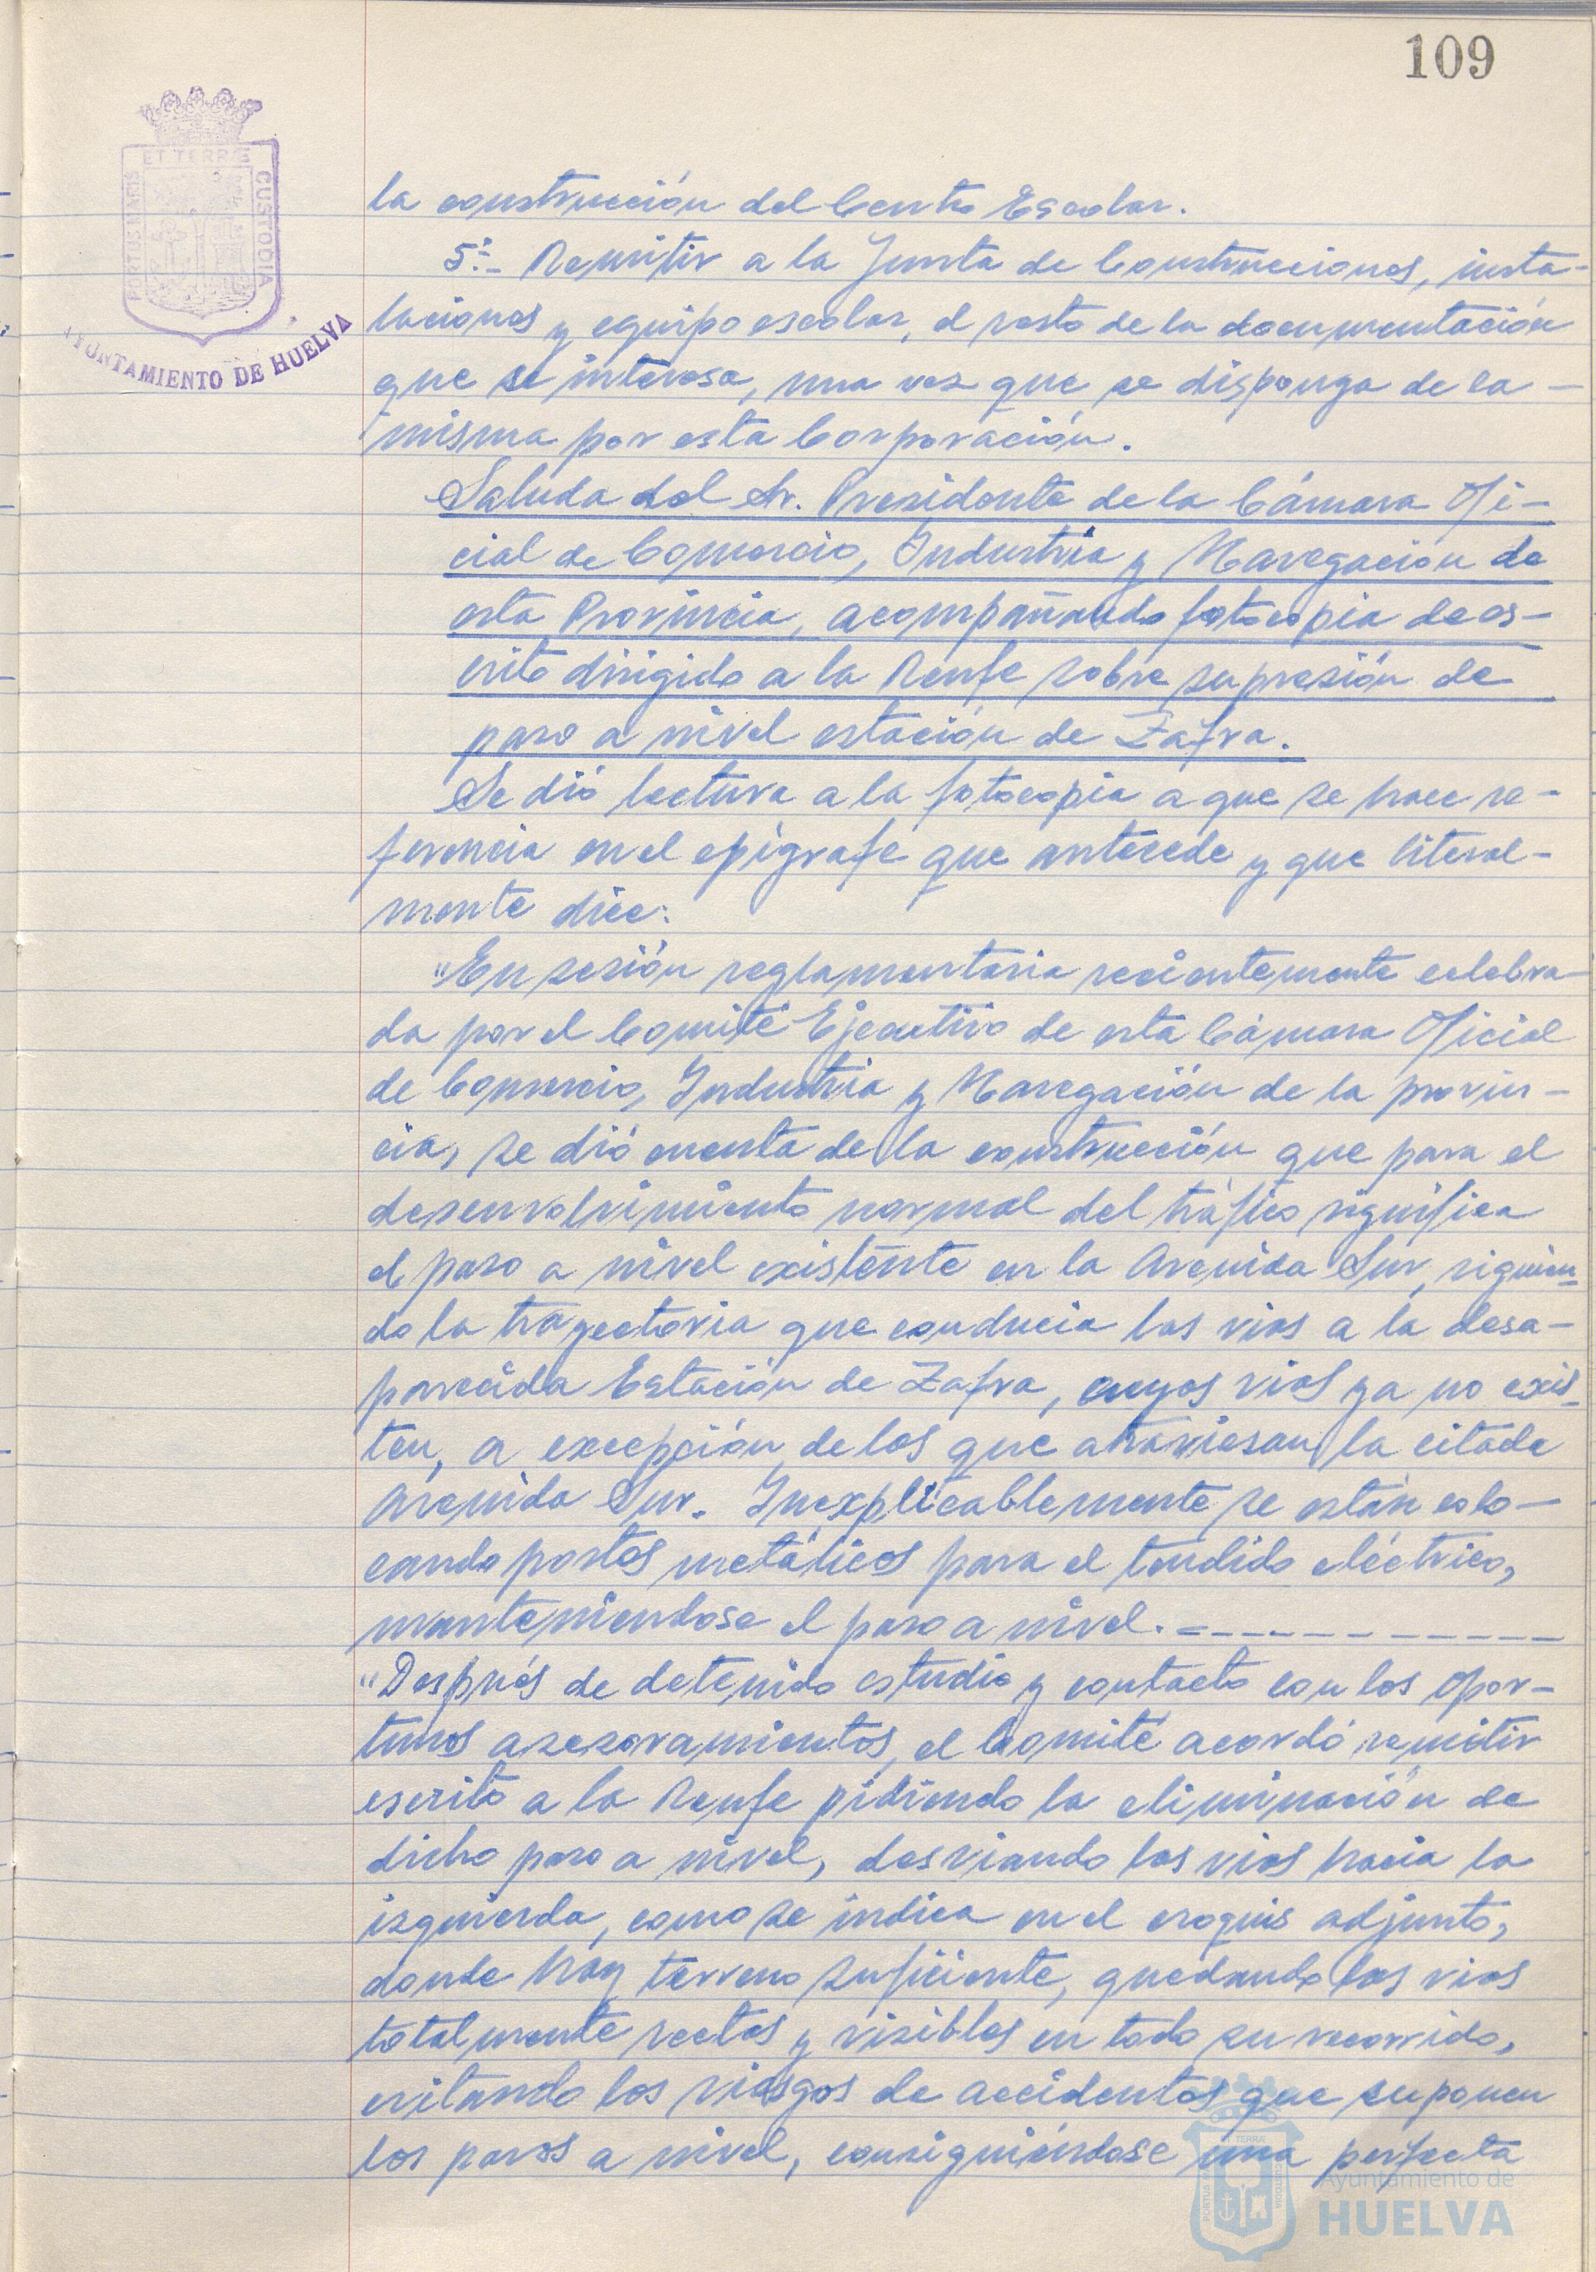 109
ET TERRÆ
PORTUS MARIS
CUSTODIA
AYUNTAMIENTO DE HUELVA
la construcción del Centro Escolar.
5º.- Remitir a la Junta de Construcciones, insta-
laciones y equipo escolar, el resto de la documentación
que se interesa, una vez que se disponga de la -
misma por esta Corporación.
Saluda del Sr. Presidente de la Cámara Ofi-
cial de Comercio, Industria y Navegación de
esta Provincia, acompañando fotocopia de es-
crito dirigido a la Renfe sobre supresión de
paso a nivel estación de Zafra.
Se dió lectura a la fotocopia a que se hace re-
ferencia en el epígrafe que antecede y que literal-
mente dice:
"En sesión reglamentaria recientemente celebra-
da por el Comité Ejecutivo de esta Cámara Oficial
de Comercio, Industria y Navegación de la provin-
cia, se dió cuenta de la construcción que para el
desenvolvimiento normal del tráfico significa
el paso a nivel existente en la Avenida Sur, siguien-
do la trayectoria que conducia las vias a la desa-
parecida Estación de Zafra, cuyas vias ya no exis-
ten, a excepción de las que atraviesan la citada
Avenida Sur. Inexplicablemente se están colo-
cando postes metálicos para el tendido eléctrico,
manteniendose el paso a nivel.-----------
"Después de detenido estudio y contacto con los opor-
tunos asesoramientos, el Comité acordó remitir
escrito a la Renfe pidiendo la eliminación de
dicho paso a nivel, desviando las vias hacia la
izquierda, como se indica en el croquis adjunto,
donde hay terreno suficiente, quedando las vias
totalmente rectas y visibles en todo su recorrido,
evitando los riesgos de accidentes que suponen
los pasos a nivel, consiguiéndose una perfecta
Ayuntamiento de
HUELVA